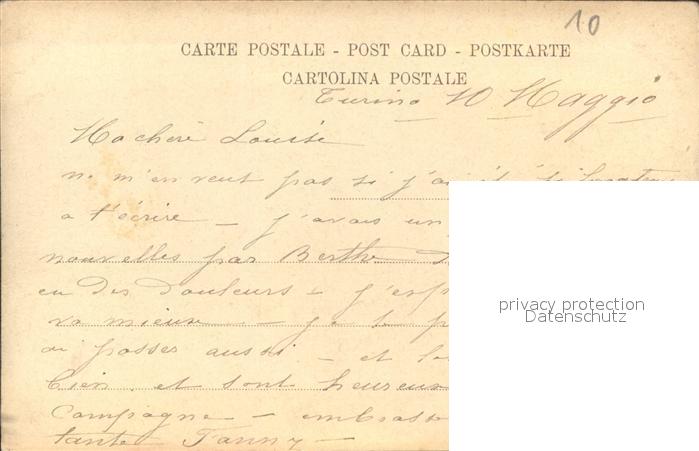 10
CARTE POSTALE - POST CARD - POSTKARTE
CARTOLINA POSTALE
Turino 10 Maggio
Ma chère Louise
ne m'en veut pas si j'ai été si
a t'écrire - j'avais un
nouvelles par Berthe
eu des douleurs - j'esp
va mieux - je te p
passer aussi - et
bien et sont heureux
Campagne - embrasse
tante Fanny -
privacy protection
Datenschutz